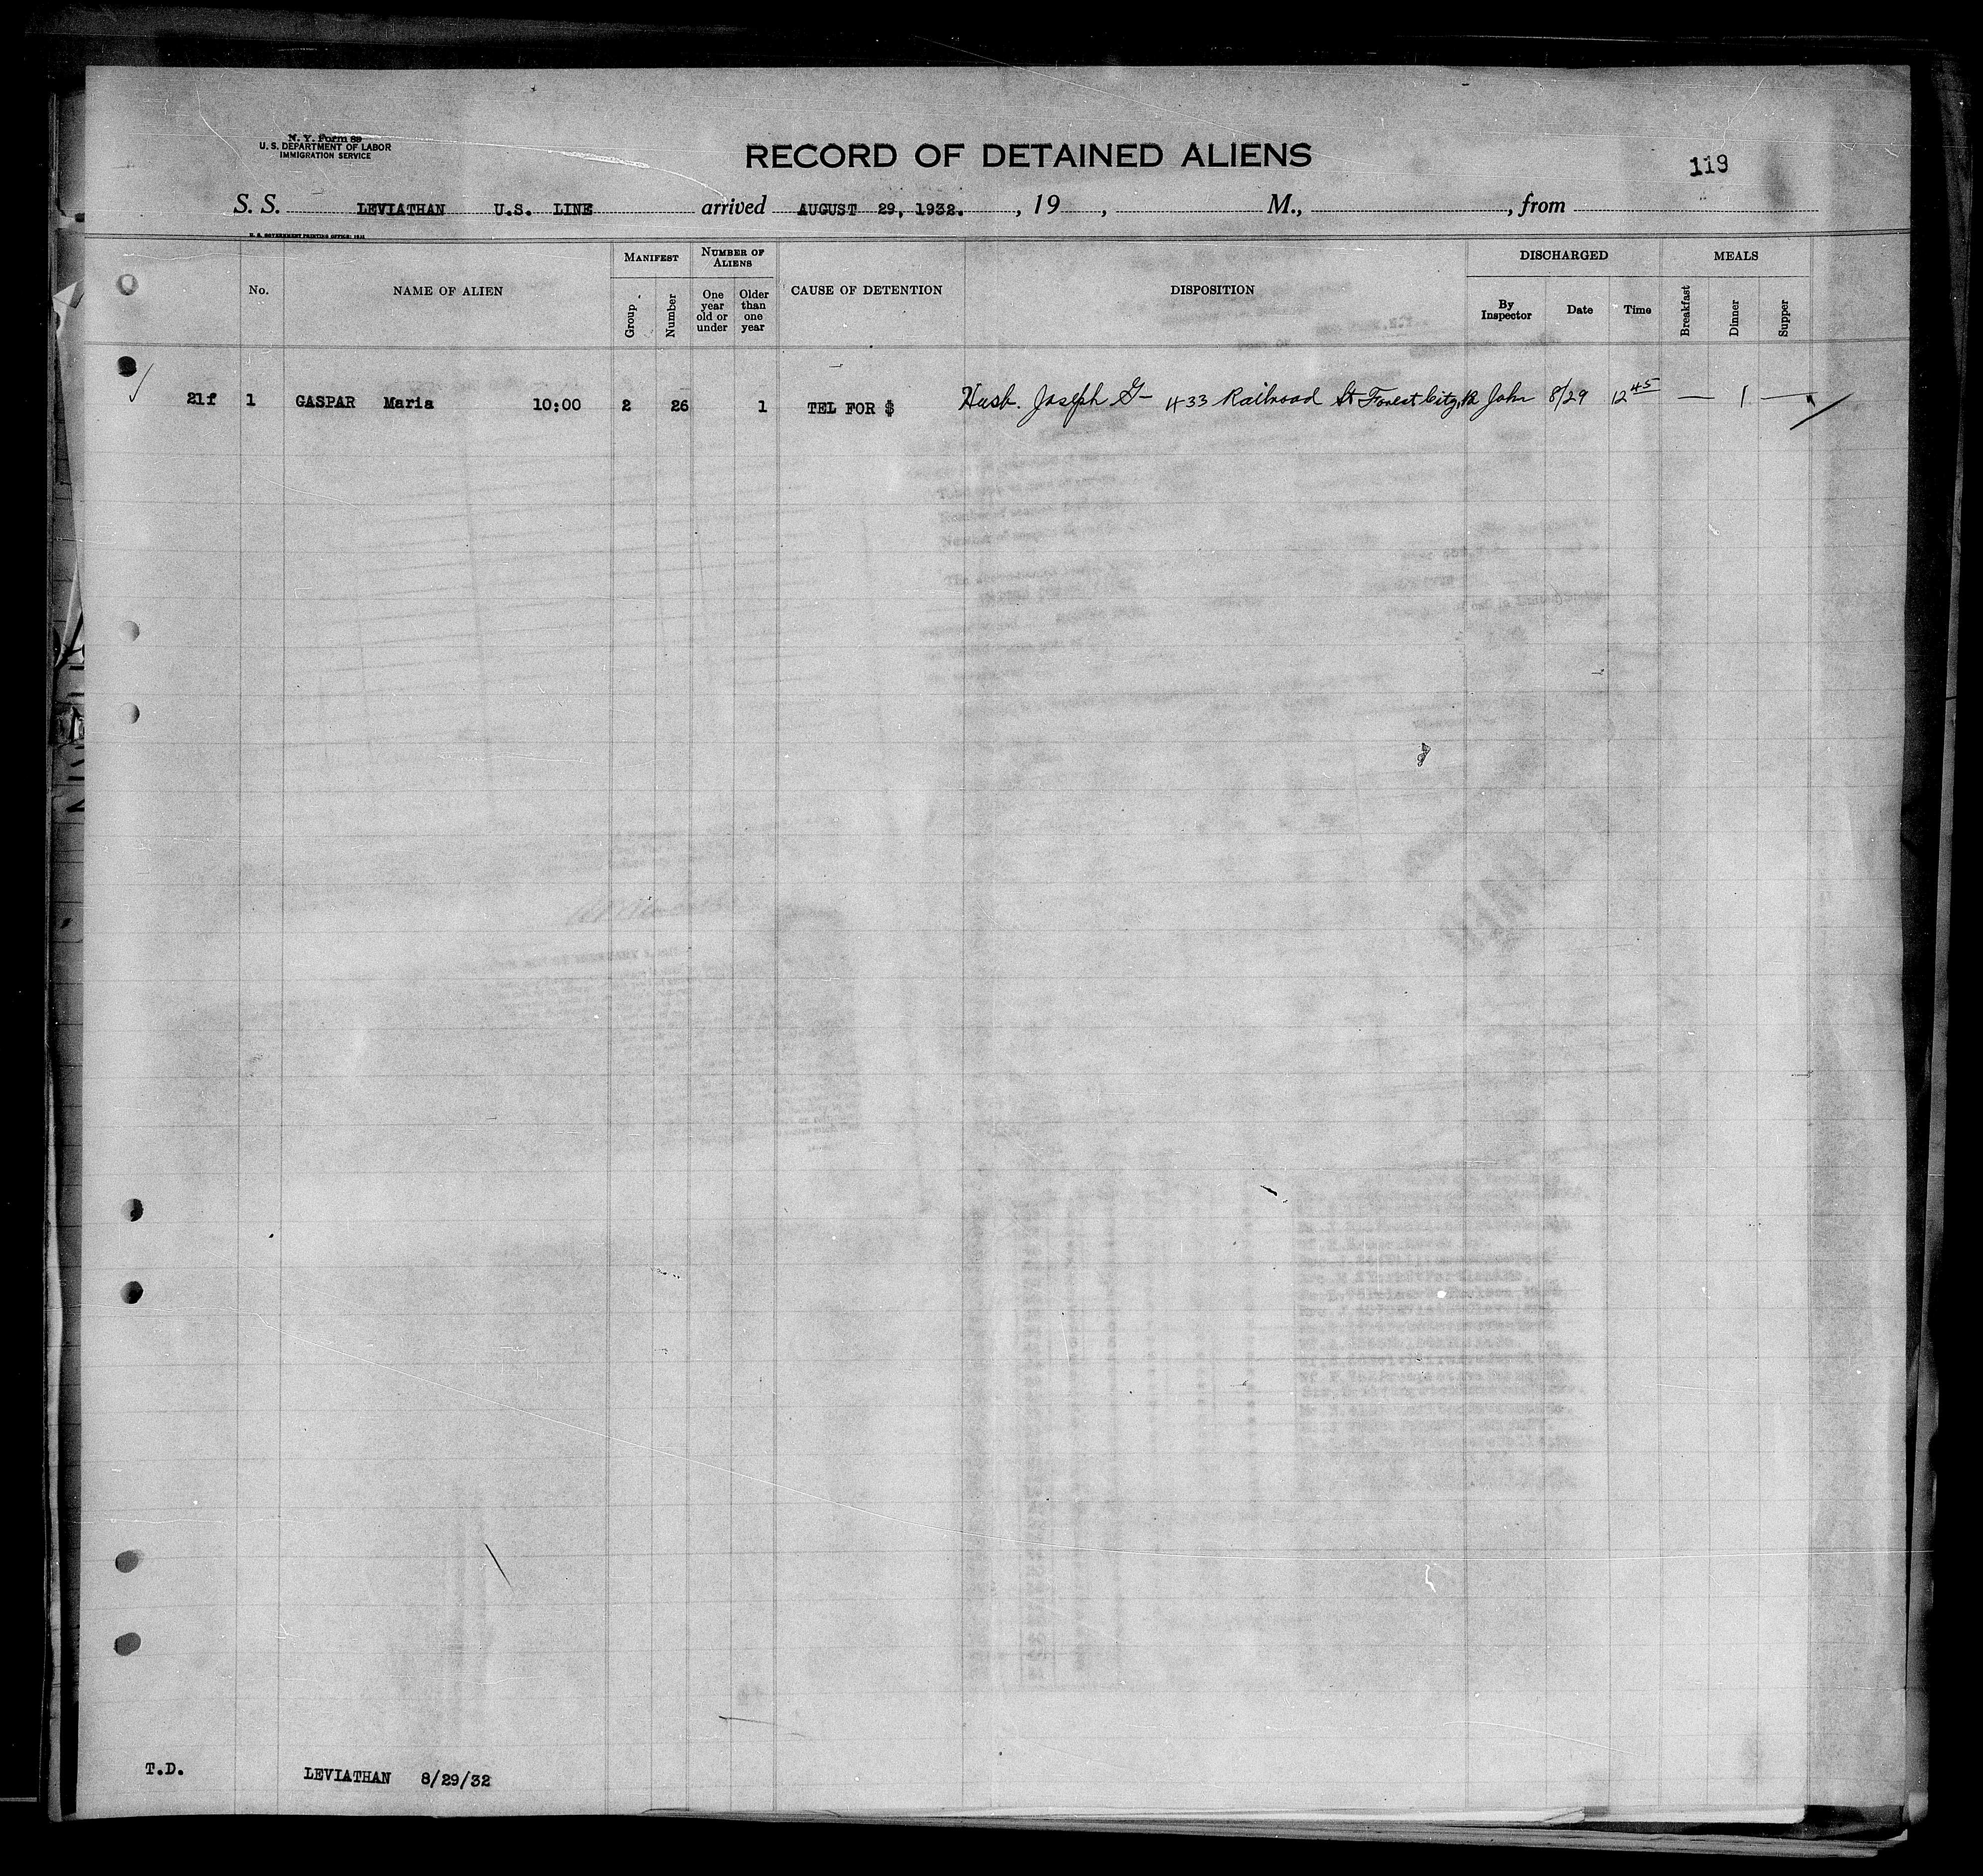 N. Y. Form 89
U. S. DEPARTMENT OF LABOR
IMMIGRATION SERVICE
RECORD OF DETAINED ALIENS
119
S. S. LEVIATHAN U.S. LINE arrived AUGUST 29, 1932. , 19 , M., , from
U. S. GOVERNMENT PRINTING OFFICE: 1931
No.
NAME OF ALIEN
MANIFEST
Group
Number
NUMBER OF ALIENS
One year old or under
Older than one year
CAUSE OF DETENTION
DISPOSITION
DISCHARGED
By Inspector
Date
Time
MEALS
Breakfast
Dinner
Supper
21f 1 GASPAR Maria 10:00 2 26 1 TEL FOR $ Husb. Joseph G- 433 Railroad St Forest City, Pa John 8/29 12 45 — 1 —
T.D. LEVIATHAN 8/29/32